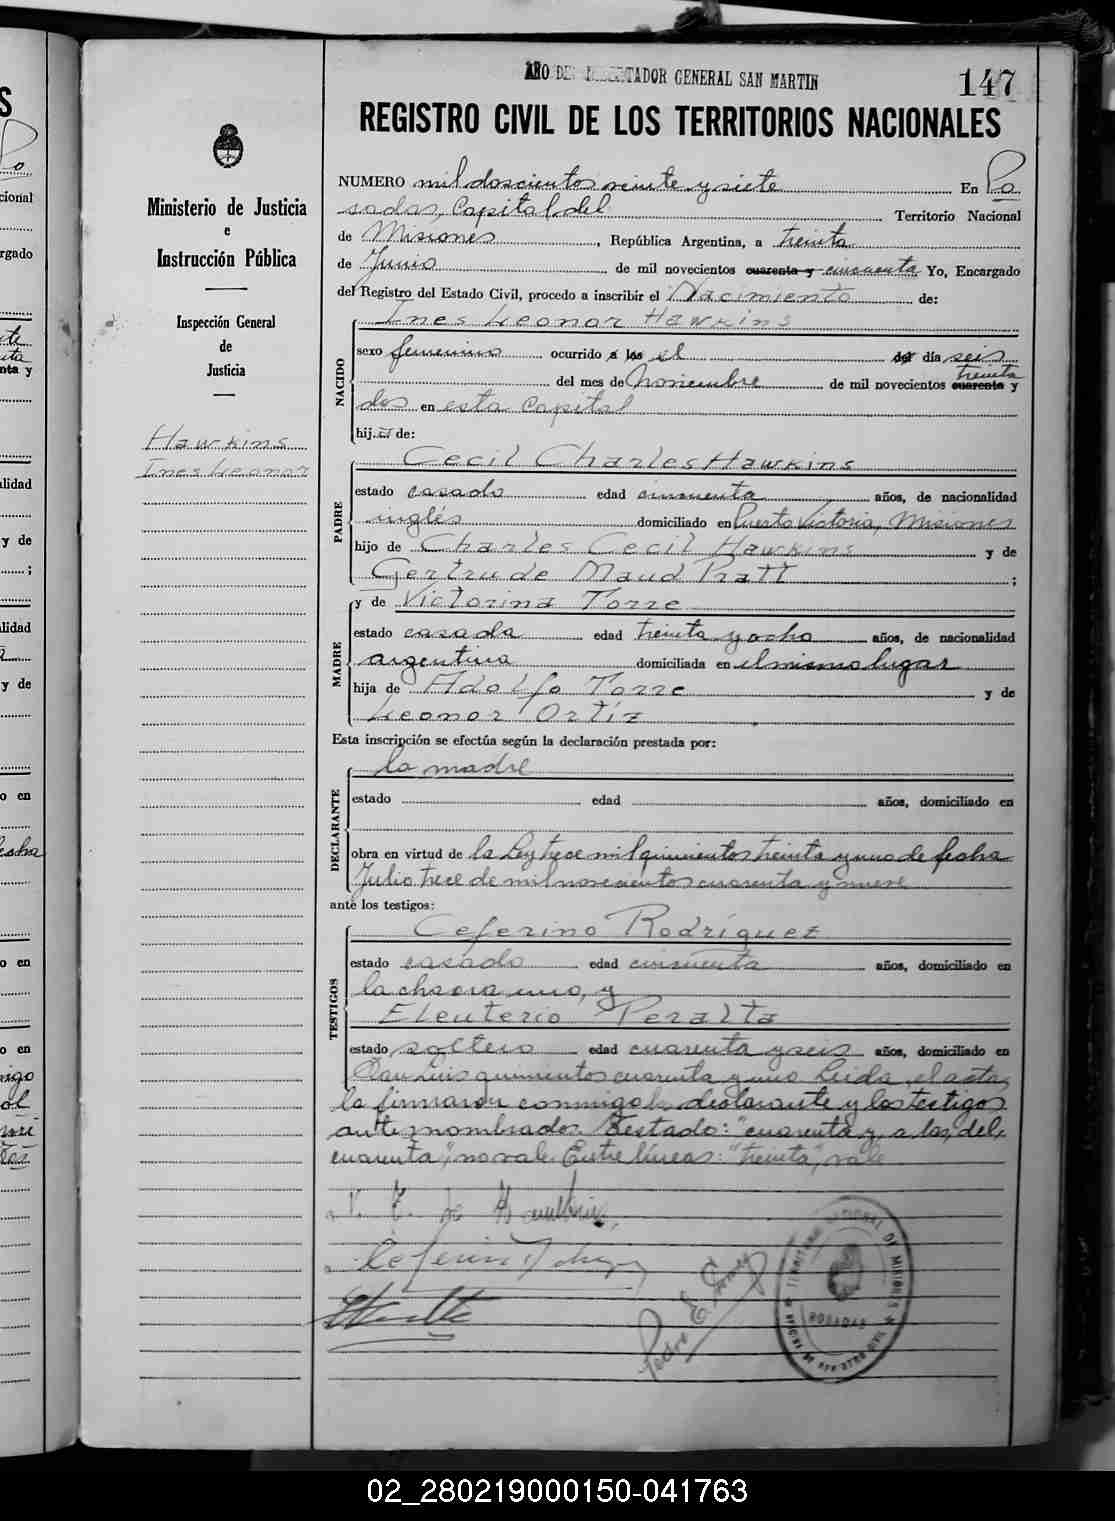 AÑO DEL LIBERTADOR GENERAL SAN MARTIN
147
REGISTRO CIVIL DE LOS TERRITORIOS NACIONALES
Ministerio de Justicia
e
Instrucción Pública
Inspección General
de
Justicia
Hawkins
Ines Leonor
NUMERO mil doscientos veinte y siete En Po
sadas, Capital del Territorio Nacional
de Misiones, República Argentina, a treinta
de Junio de mil novecientos cuarenta y cincuenta Yo, Encargado
del Registro del Estado Civil, procedo a inscribir el Nacimiento de:
Ines Leonor Hawkins
NACIDO
sexo femenino ocurrido a las el del día seis
treinta
del mes de Noviembre de mil novecientos cuarenta y
dos en esta Capital
hij.a de:
PADRE
Cecil Charles Hawkins
estado casado edad cincuenta años, de nacionalidad
inglés domiciliado en Puerto Victoria, Misiones
hijo de Charles Cecil Hawkins y de
Gertrude Maud Pratt ;
MADRE
y de Victorina Torre
estado casada edad treinta y ocho años, de nacionalidad
argentina domiciliada en el mismo lugar
hija de Adolfo Torre y de
Leonor Ortíz
Esta inscripción se efectúa según la declaración prestada por:
DECLARANTE
la madre
estado edad años, domiciliado en
obra en virtud de la Ley trece mil quinientos treinta y uno de fecha
Julio trece de mil novecientos cuarenta y nueve
ante los testigos:
TESTIGOS
Ceferino Rodríguez
estado casado edad cincuenta años, domiciliado en
la chacra uno, y
Eleuterio Peralta
estado soltero edad cuarenta y seis años, domiciliado en
San Luis quinientos cuarenta y uno Leida el acta,
la firmaron conmigo la declarante y los testigos
antes nombrados Testado: "cuarenta y, a las, del,
cuarenta", no vale. Entre líneas: "treinta", vale
V. T. de Hawkins
Ceferino
Pedro E.
TERRITORIO NACIONAL DE MISIONES
POSADAS
OFICINA DE REGISTRO CIVIL
02_280219000150-041763